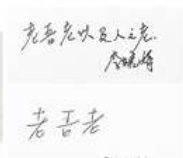 老吾老以及人之老.
老吾老